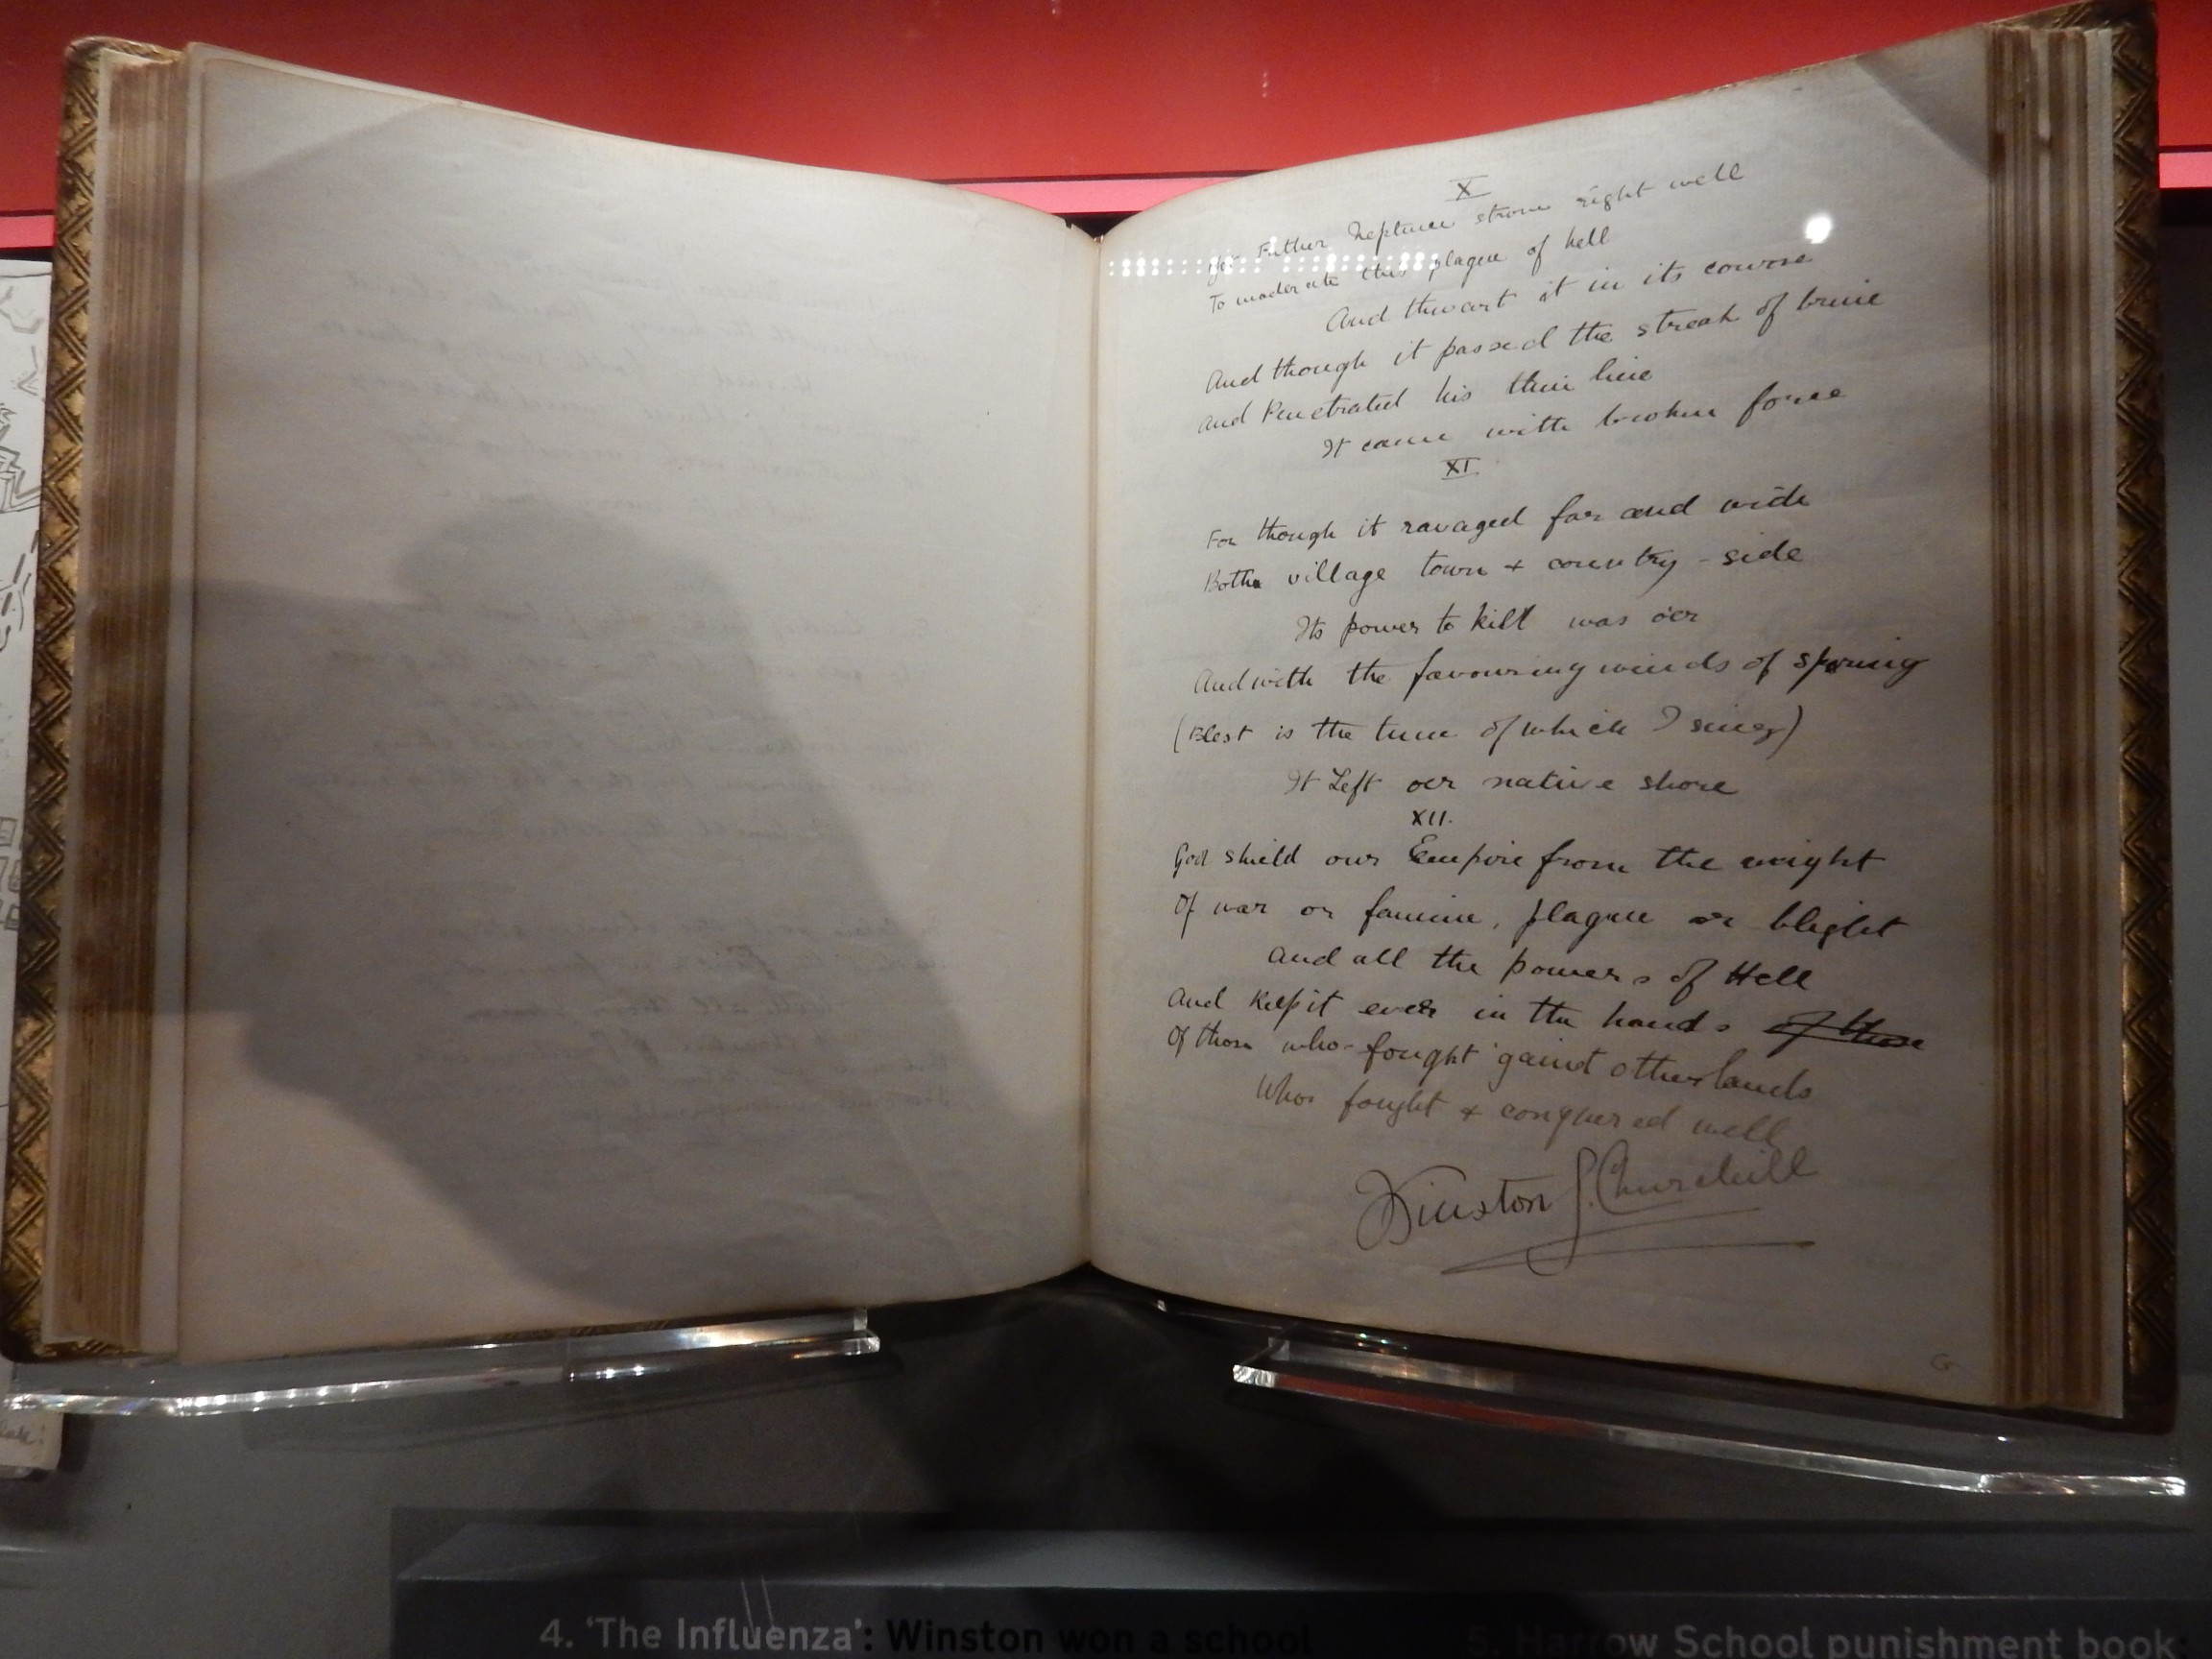 X
Yet Father Neptune strove right well
To moderate this plague of hell
And thwart it in its course
And though it passed the streak of brine
And Penetrated his thin line
It came with broken force
XI
For though it ravaged far and wide
Both village town + country-side
Its power to kill was o'er
And with the favouring winds of spring
(Blest is the time of which I sing)
It Left our native shore
XII.
God shield our Empire from the might
Of war or famine, plague or blight
And all the powers of Hell
And keep it ever in the hands of those
Of those who fought 'gainst other lands
Who fought + conquered well
Winston S. Churchill
4. 'The Influenza': Winston won a school
5. Harrow School punishment book: